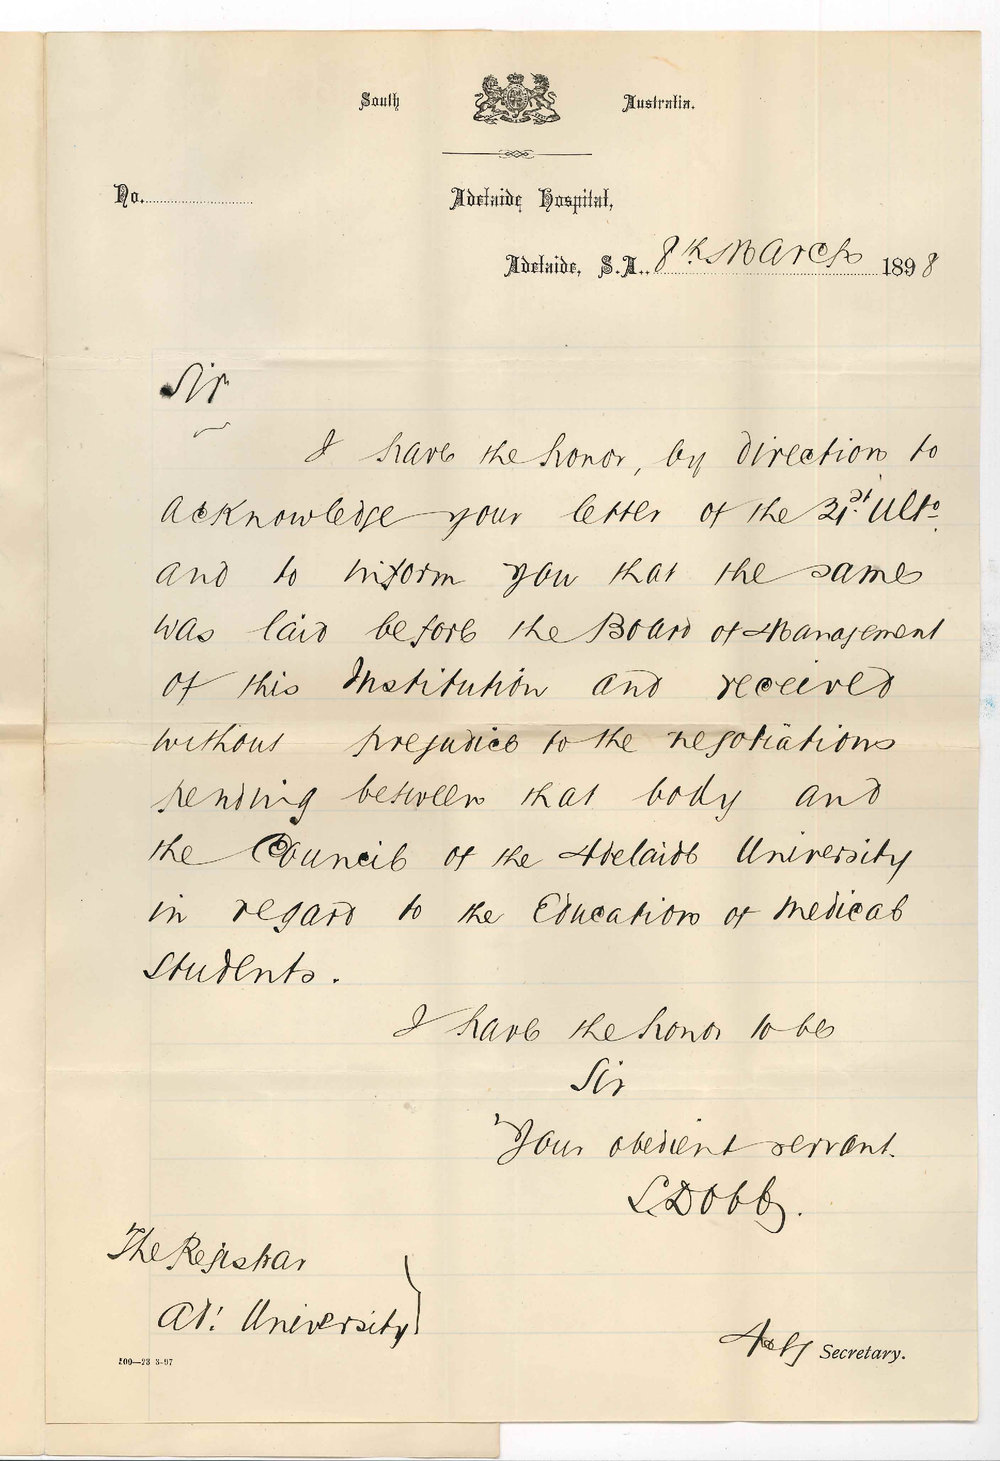 South Australia.
No.
Adelaide Hospital,
Adelaide, S.A., 8th March 1898
Sir
I have the honor, by direction to
acknowledge your letter of the 21st Ulto.
and to inform you that the same
was laid before the Board of Management
of this Institution and received
without prejudice to the negotiations
pending between that body and
the Council of the Adelaide University
in regard to the Education of Medical
Students.
I have the honor to be
Sir
Your obedient servant.
L. Dobby.
The Registrar
Ad: University
Actg Secretary.
500—23 3-97